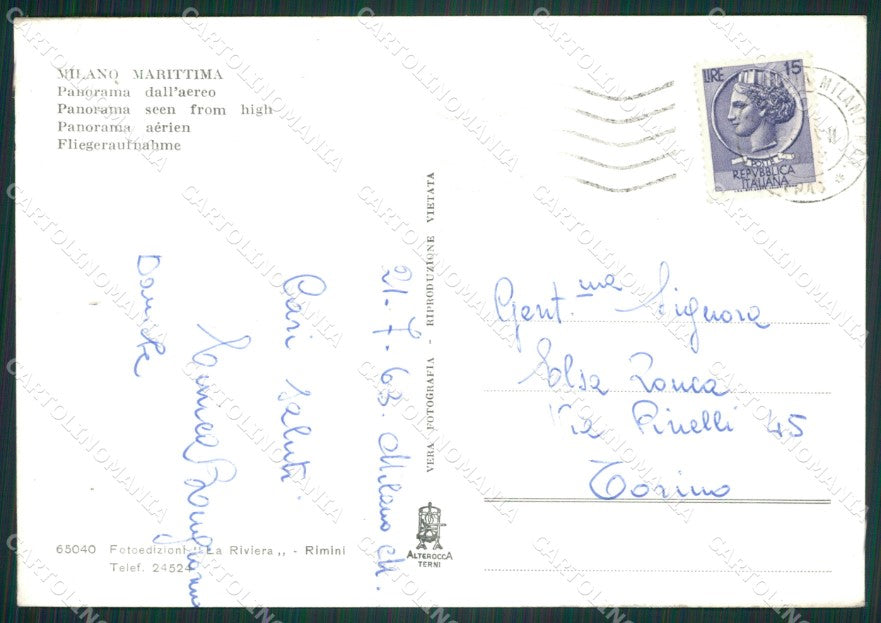 MILANO MARITTIMA
Panorama dall'aereo
Panorama seen from high
Panorama aérien
Fliegeraufnahme
LIRE 15
POSTE
REPVBBLICA
ITALIANA
MILANO
VERA FOTOGRAFIA - RIPRODUZIONE VIETATA
21-7-63. Milano M.
Cari saluti
Daniele
Gent.ma Signora
Elsa Ronca
Via Pinelli 45
Torino
65040 Fotoedizioni "La Riviera,, - Rimini
Telef. 24524
ALTEROCCA
TERNI
CARTOLINOMANIA